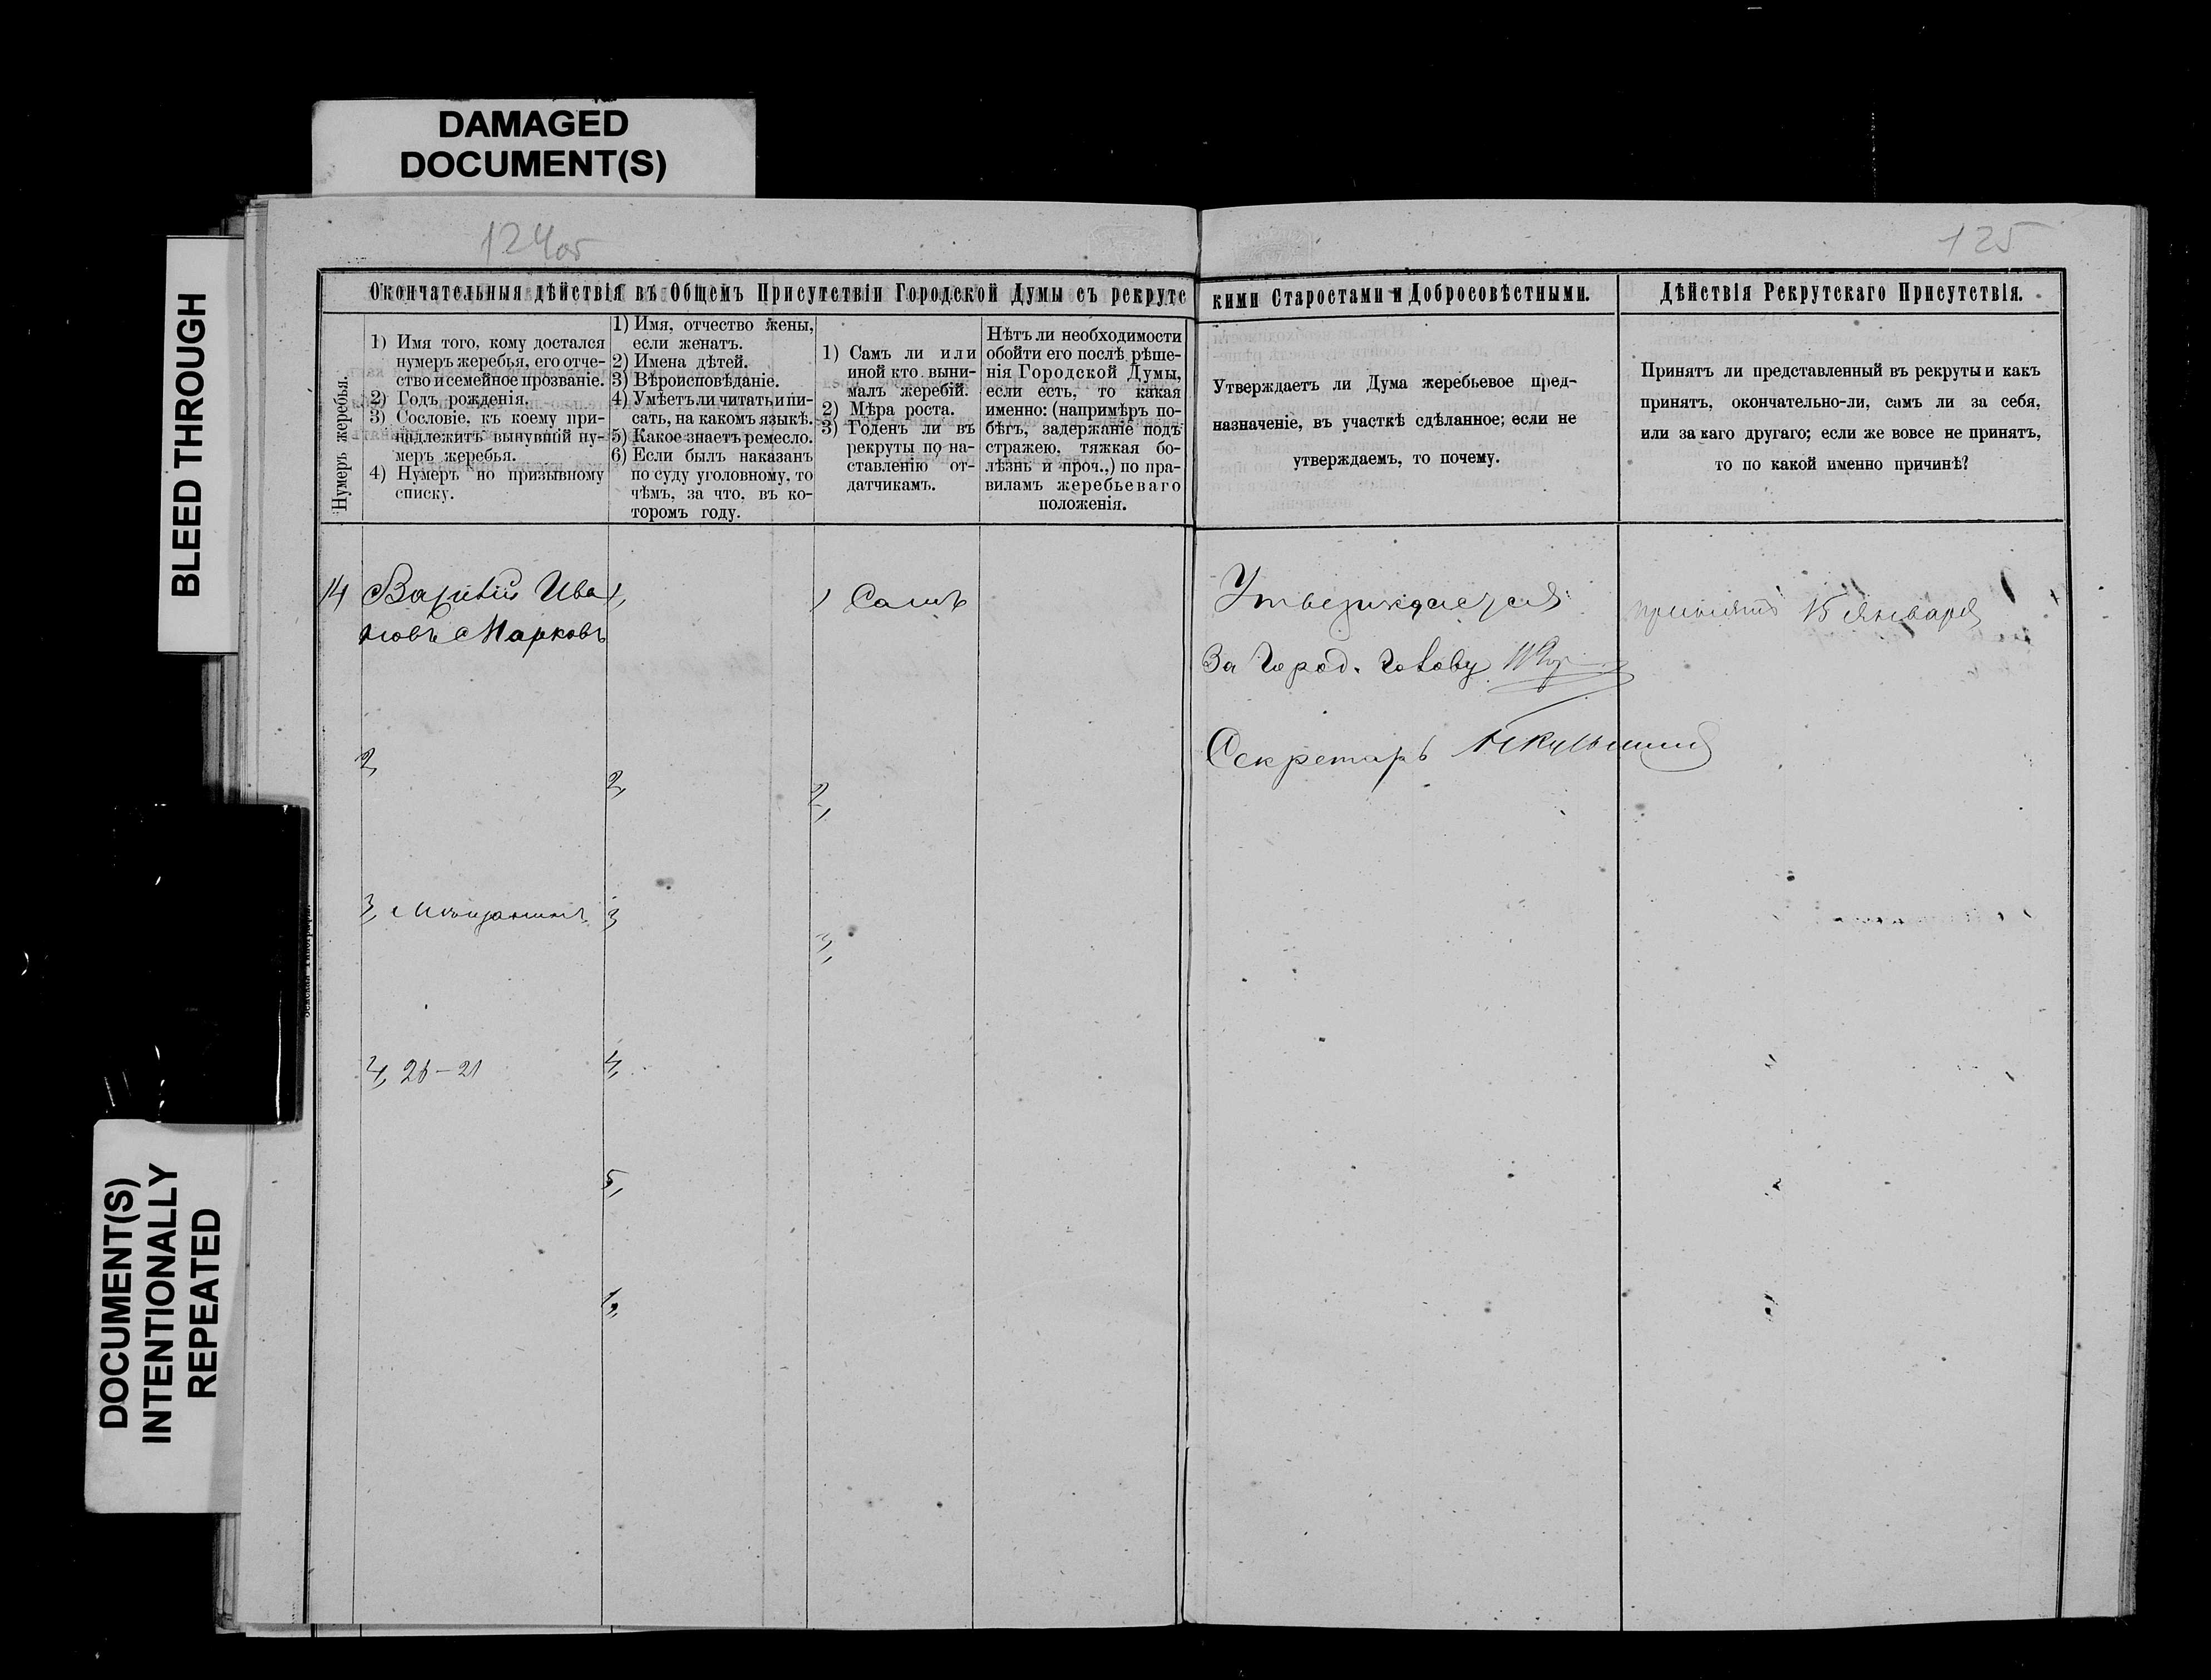 DAMAGED
DOCUMENT(S)
BLEED THROUGH
DOCUMENT(S)
INTENTIONALLY
REPEATED
124об
125
Окончательныя дѣйствія въ Общемъ Присутствіи Городской Думы съ рекрутс
кими Старостами и Добросовѣстными.
Дѣйствія Рекрутскаго Присутствія.
Нумеръ жеребья.
1) Имя того, кому достался
нумеръ жеребья, его отче-
ство и семейное прозваніе.
2) Годъ рожденія.
3) Сословіе, къ коему при-
надлежитъ вынувшій ну-
меръ жеребья.
4) Нумеръ по призывному
списку.
1) Имя, отчество жены,
если женатъ.
2) Имена дѣтей.
3) Вѣроисповѣданіе.
4) Умѣетъ ли читать и пи-
сать, на какомъ языкѣ.
5) Какое знаетъ ремесло.
6) Если былъ наказанъ
по суду уголовному, то
чѣмъ, за что, въ ко-
торомъ году.
1) Самъ ли или
иной кто выни-
малъ жеребій.
2) Мѣра роста.
3) Годенъ ли въ
рекруты по на-
ставленію от-
датчикамъ.
Нѣтъ ли необходимости
обойти его послѣ рѣше-
нія Городской Думы,
если есть, то какая
именно: (напримѣръ по-
бѣгъ, задержаніе подъ
стражею, тяжкая бо-
лѣзнь и проч.,) по пра-
виламъ жеребьеваго
положенія.
Утверждаетъ ли Дума жеребьевое пред-
назначеніе, въ участкѣ сдѣланное; если не
утверждаемъ, то почему.
Принятъ ли представленный въ рекруты и какъ
принятъ, окончательно-ли, самъ ли за себя,
или за каго другаго; если же вовсе не принятъ,
то по какой именно причинѣ?
14
Василій Ива
новъ Марковъ
2,
3, Мѣщанинъ
4, 26-21
1,
2,
3
4,
5,
1) Самъ
2,
3,
Утверждается
За Город. Голову
Секретарь
принятъ 15 Января